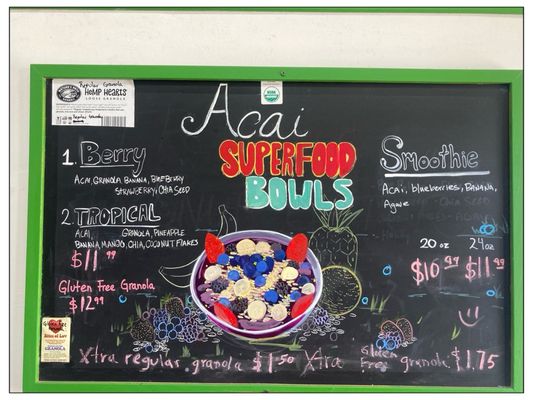 Regular Granola
HEMP HEARTS
LOOSE GRANOLA
Regular Granola
USDA
ORGANIC
Acai
SUPERFOOD
BOWLS
1. Berry
ACAI, GRANOLA BANANA, BLUEBERRY
STRAWBERRY, CHIA SEED
2. TROPICAL
ACAI, GRANOLA, PINEAPPLE
BANANA, MANGO, CHIA, COCONUT FLAKES
$11 99
Gluten Free Granola
$12 99
Smoothie
Acai, blueberries, BANANA,
Agwe
20 oz 24 oz
$10 99 $11 99
Gluten Free
GRANOLA
Xtra regular granola $1.50 Xtra Gluten Free granola $1.75